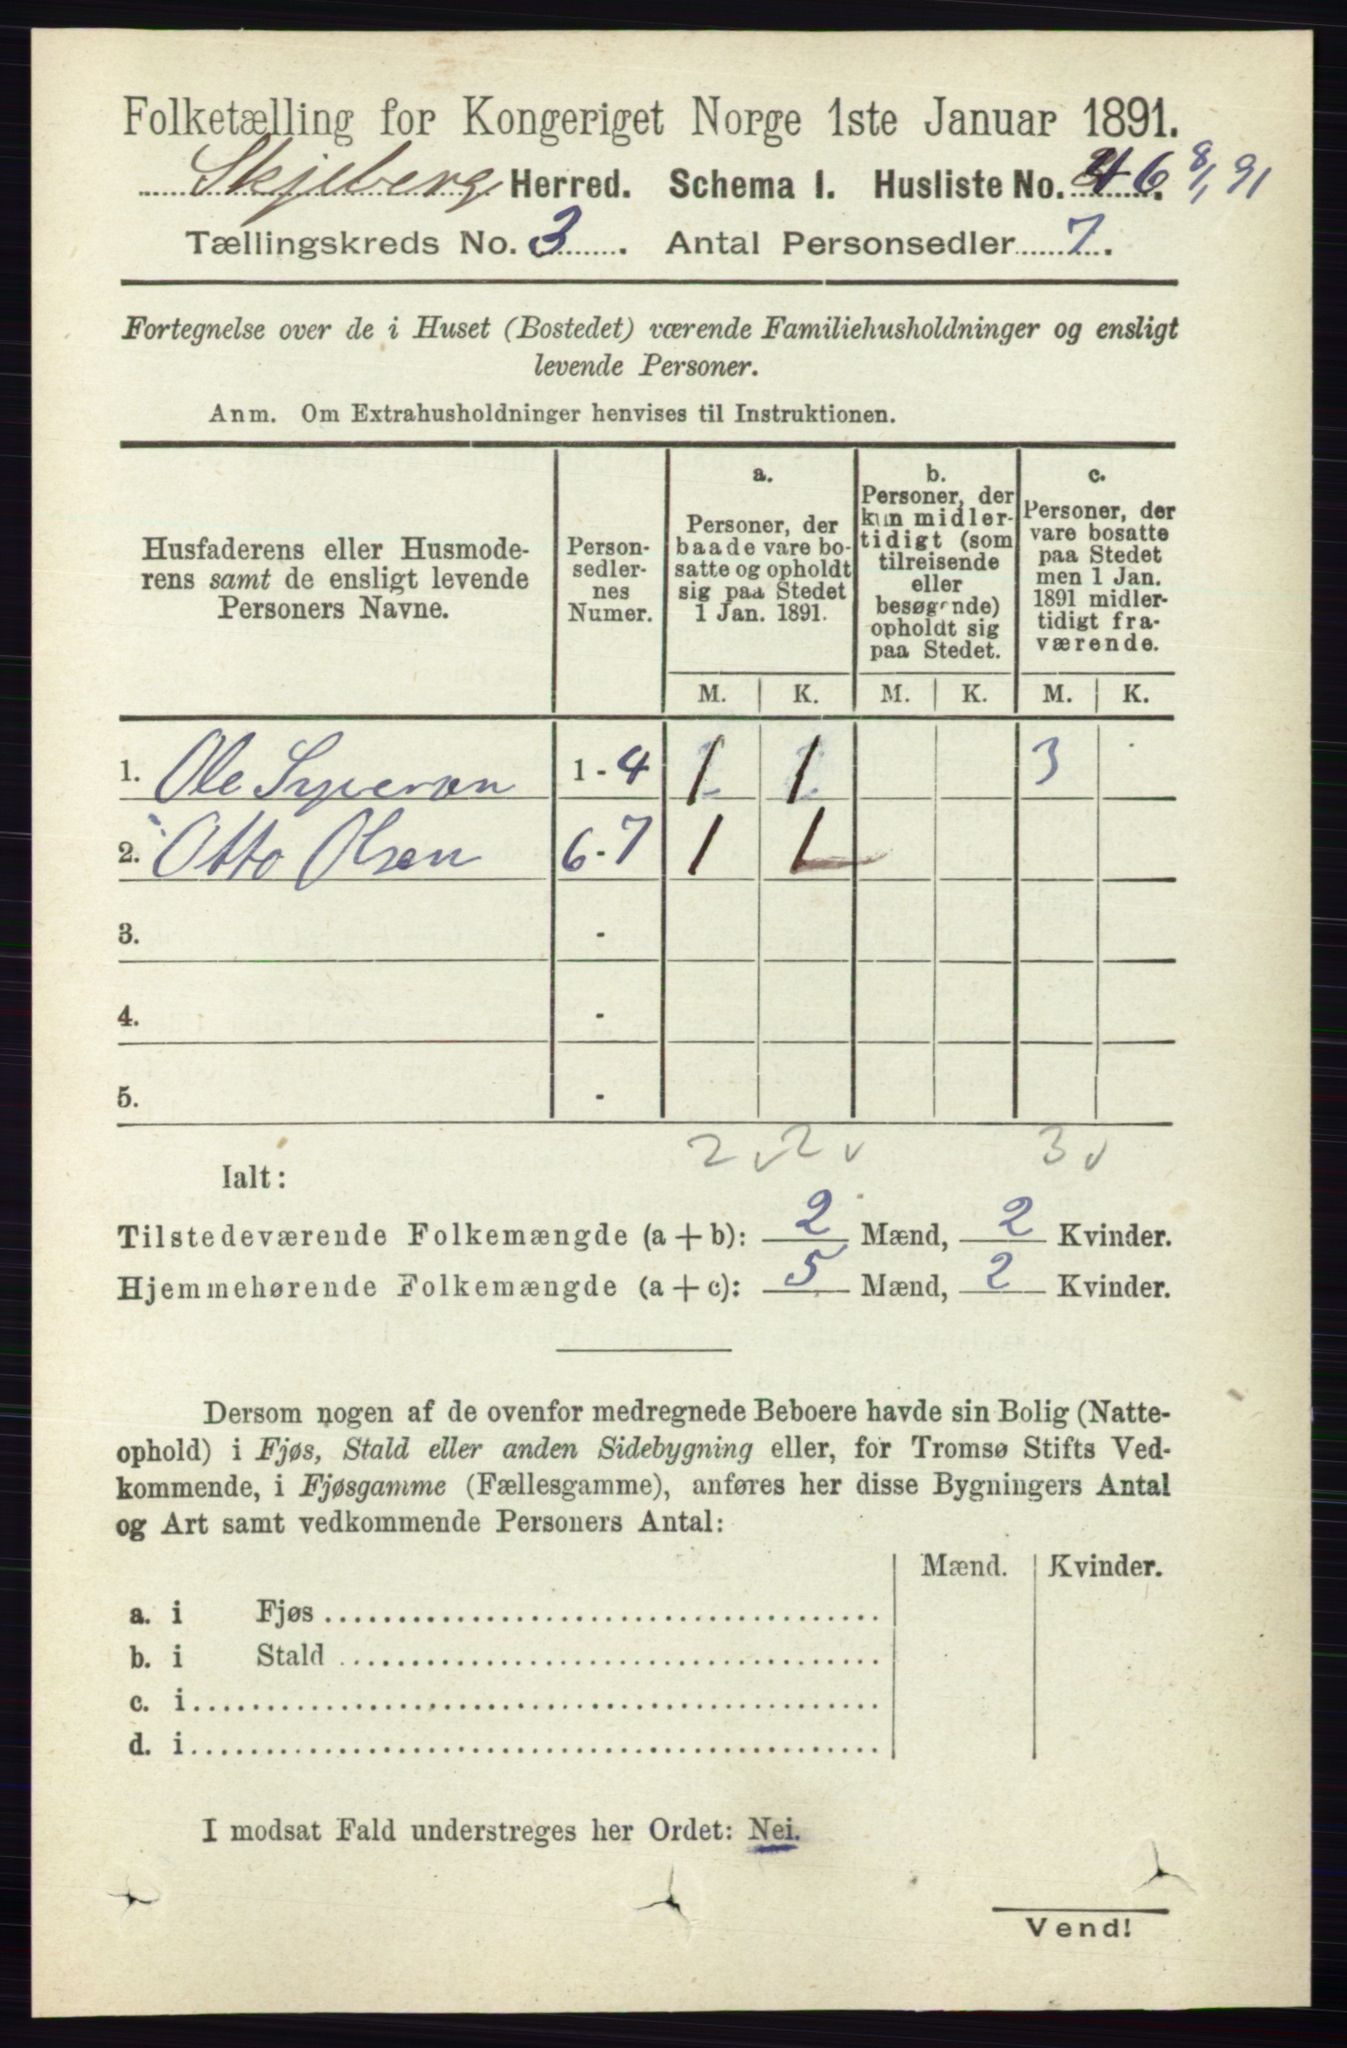 Folketælling for Kongeriget Norge 1ste Januar 1891.
Skjeberg Herred. Schema I. Husliste No. 46 8/1 91
Tællingskreds No. 3. Antal Personsedler 7.
Fortegnelse over de i Huset (Bostedet) værende Familiehusholdninger og ensligt
levende Personer.
Anm. Om Extrahusholdninger henvises til Instruktionen.
Husfaderens eller Husmode-
rens samt de ensligt levende
Personers Navne.
Person-
sedler-
nes
Numer.
a.
Personer, der
baade vare bo-
satte og opholdt
sig paa Stedet
1 Jan. 1891.
b.
Personer, der
kun midler-
tidigt (som
tilreisende
eller
besøgende)
opholdt sig
paa Stedet.
c.
Personer, der
vare bosatte
paa Stedet
men 1 Jan.
1891 midler-
tidigt fra-
værende.
M. K. M. K. M. K.
1. Ole Syversen 1-4 1 1 3
2. Otto Olsen 6-7 1 1
3. -
4. -
5. -
2 v 2 v 3 v
Ialt:
Tilstedeværende Folkemængde (a+b): 2 Mænd, 2 Kvinder.
Hjemmehørende Folkemængde (a+c): 5 Mænd, 2 Kvinder.
Dersom nogen af de ovenfor medregnede Beboere havde sin Bolig (Natte-
ophold) i Fjøs, Stald eller anden Sidebygning eller, for Tromsø Stifts Ved-
kommende, i Fjøsgamme (Fællesgamme), anføres her disse Bygningers Antal
og Art samt vedkommende Personers Antal:
Mænd. Kvinder.
a. i Fjøs
b. i Stald
c. i
d. i
I modsat Fald understreges her Ordet: Nei.
Vend!